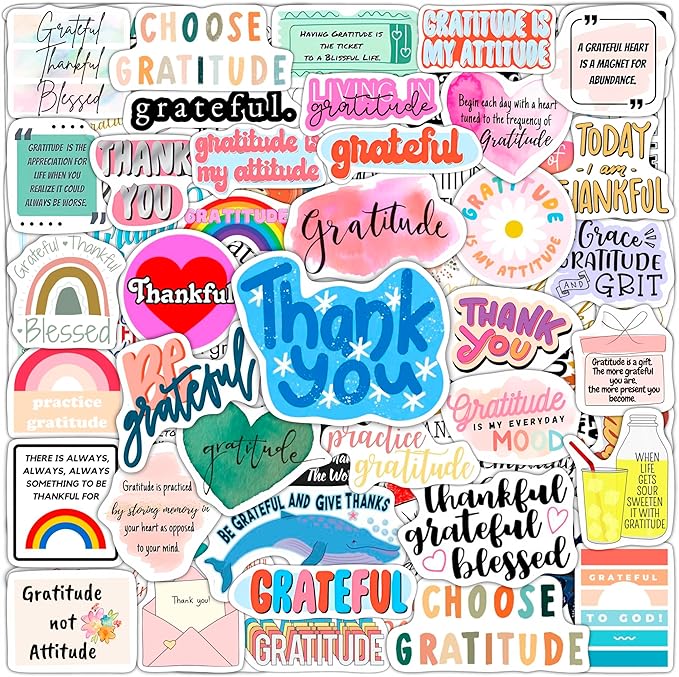 Grateful
Thankful
Blessed
CHOOSE
GRATITUDE
HAVING GRATITUDE IS
THE TICKET
TO A BLISSFUL LIFE.
GRATITUDE IS
MY ATTITUDE
"
A GRATEFUL HEART
IS A MAGNET FOR
ABUNDANCE.
"
grateful.
LIVING IN
gratitude
Begin each day with a heart
tuned to the frequency of
Gratitude
"
GRATITUDE IS THE
APPRECIATION FOR
LIFE WHEN YOU
REALIZE IT COULD
ALWAYS BE WORSE.
"
THANK
YOU
gratitude is
my attitude
grateful
of
TODAY
I am
THANKFUL
GRATITUDE
Gratitude
GRATITUDE
IS MY ATTITUDE
Grace
GRATITUDE
AND GRIT
Grateful Thankful
Blessed
Thankful
Thank
you
THANK
YOU
Gratitude is a gift.
The more grateful
you are,
the more present you
become.
practice
gratitude
Be
grateful
gratitude
practice
gratitude
Gratitude
IS MY EVERYDAY
MOOD
THERE IS ALWAYS,
ALWAYS, ALWAYS
SOMETHING TO BE
THANKFUL FOR
Gratitude is practiced
by storing memory in
your heart as opposed
to your mind.
BE GRATEFUL AND GIVE THANKS
thankful
grateful
blessed
WHEN
LIFE
GETS
SOUR
SWEETEN
IT WITH
GRATITUDE
Gratitude
not
Attitude
Thank you!
GRATEFUL
GRATITUDE
CHOOSE
GRATITUDE
GRATEFUL
TO GOD!